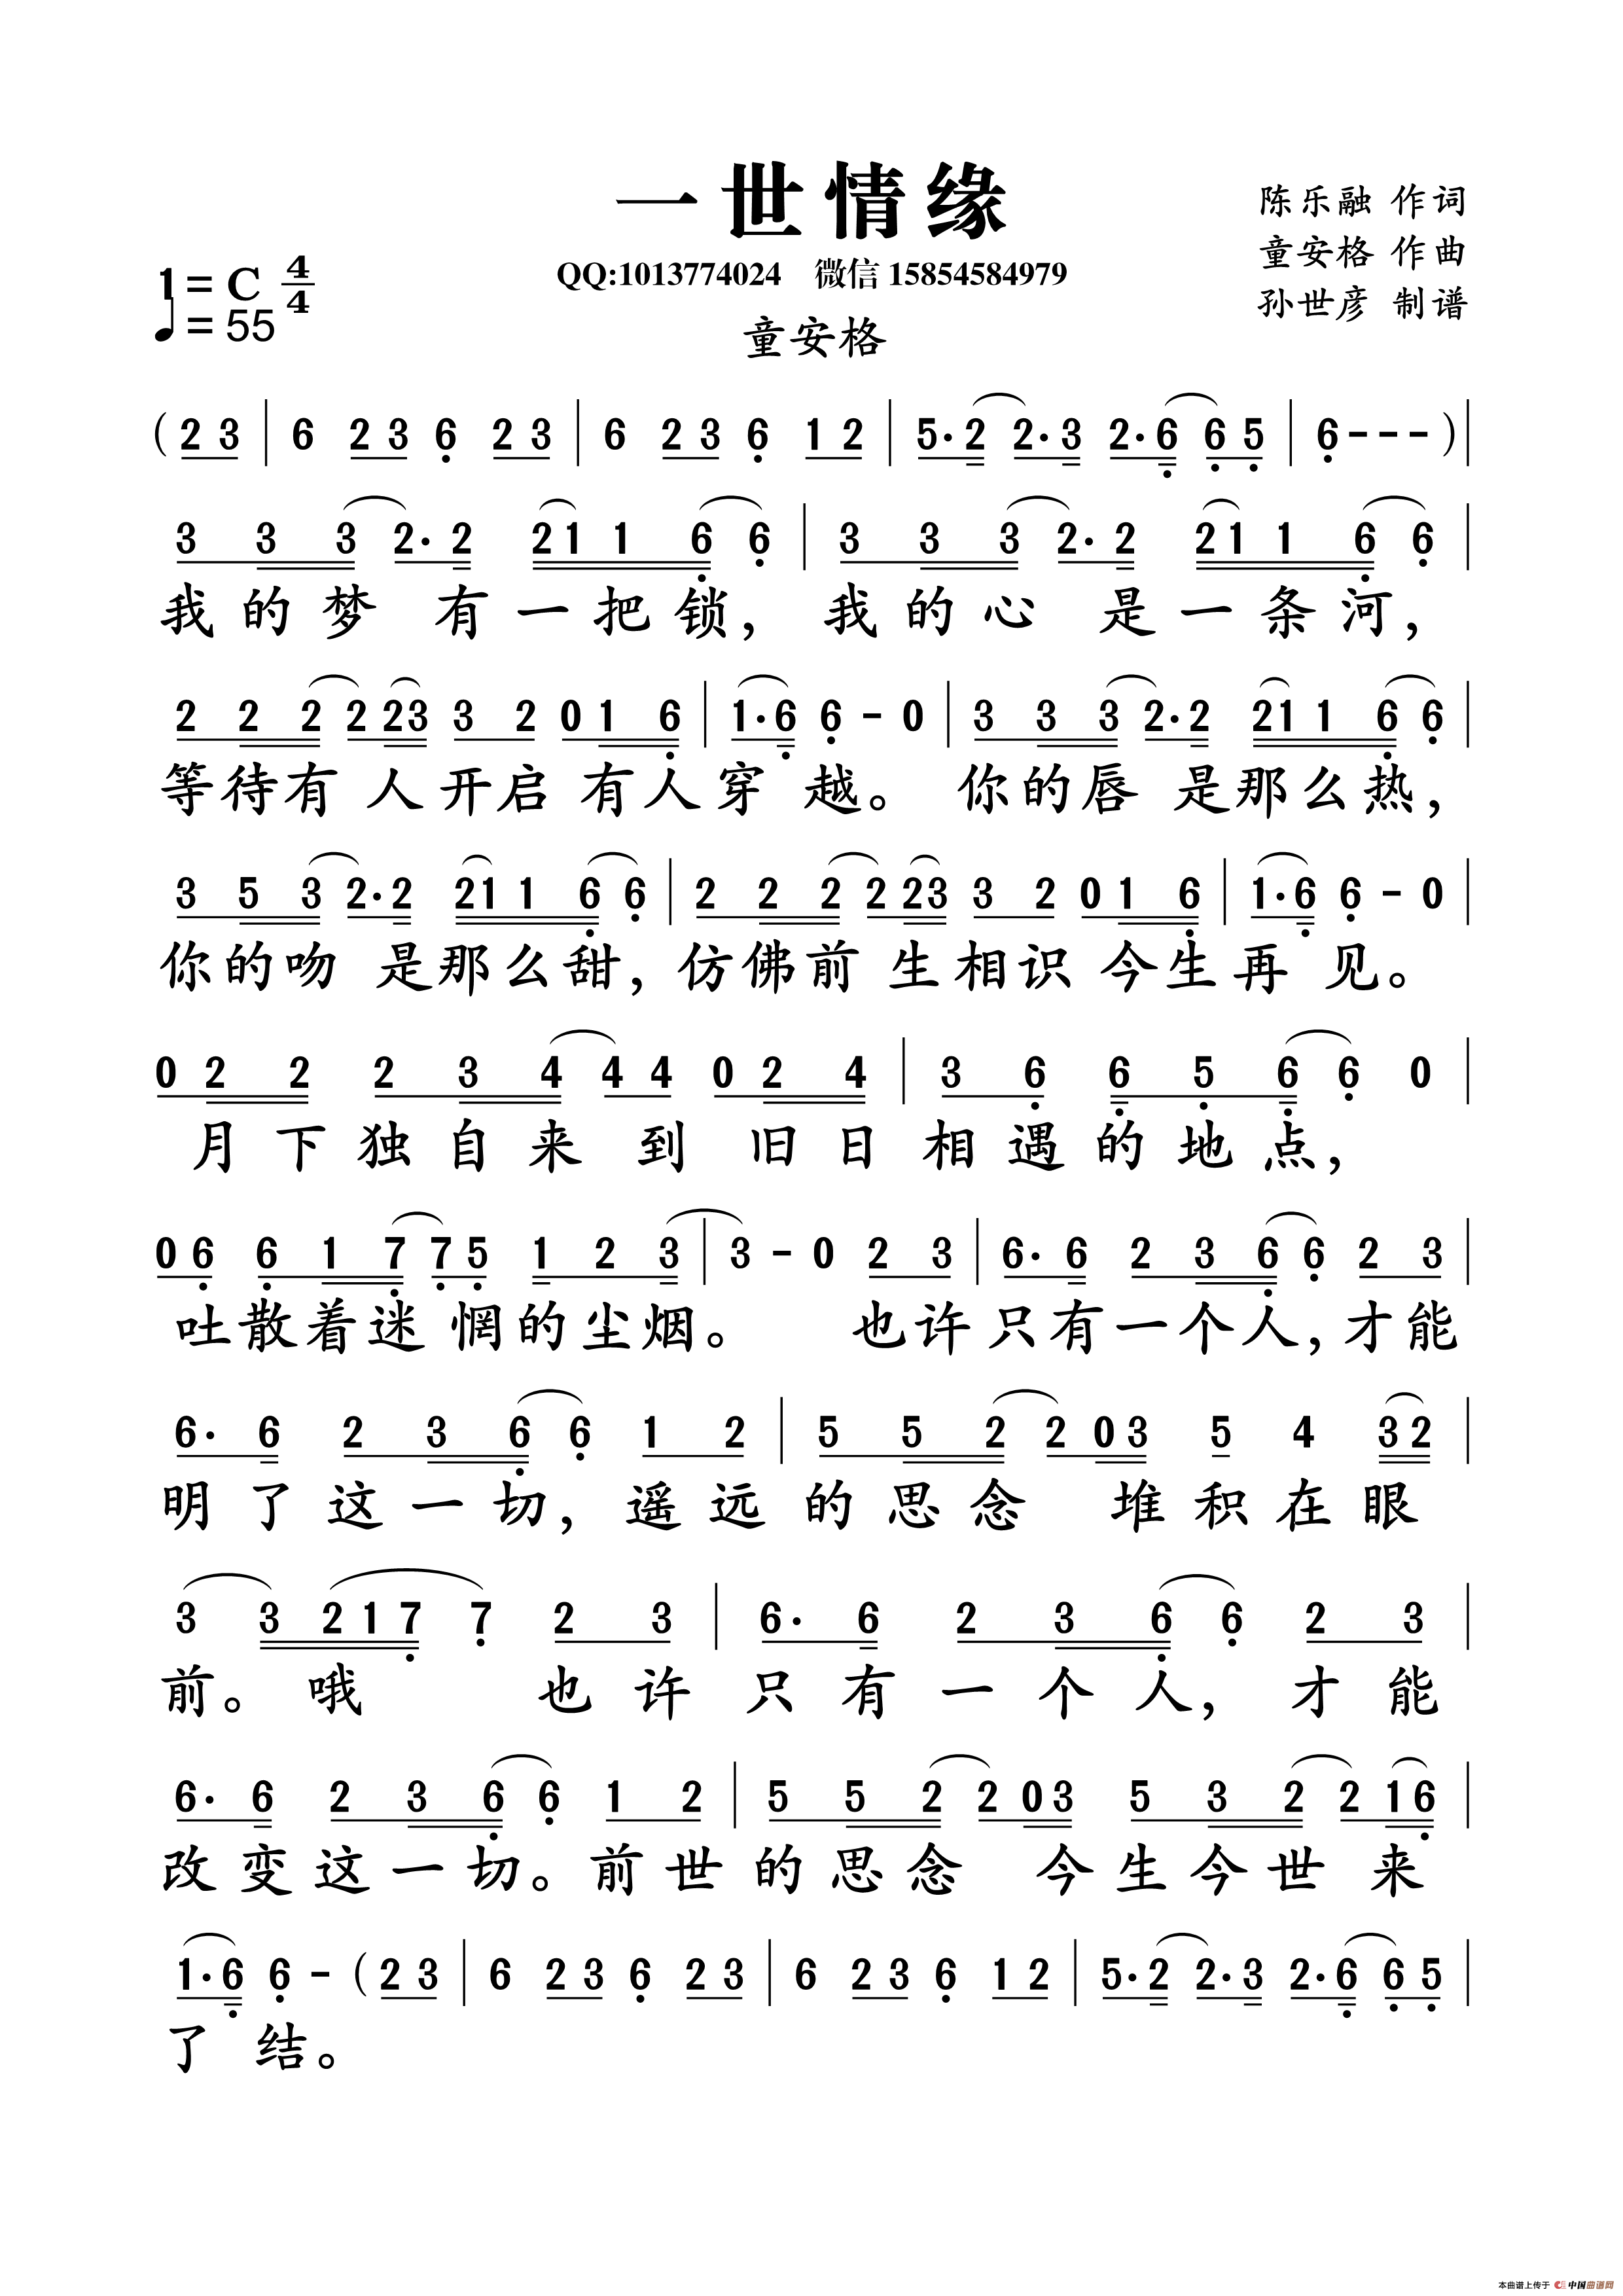 一世情缘
陈乐融 作词
童安格 作曲
孙世彦 制谱
QQ:1013774024 微信 15854584979
童安格
1= C 4/4
♩= 55
( 2 3 | 6 2 3 6 2 3 | 6 2 3 6 1 2 | 5· 2 2· 3 2· 6 6 5 | 6 - - - ) |
3 3 3 2· 2 2 1 1 6 6 | 3 3 3 2· 2 2 1 1 6 6 |
我的梦 有一把锁, 我的心 是一条河,
2 2 2 2 2 3 3 2 0 1 6 | 1· 6 6 - 0 | 3 3 3 2· 2 2 1 1 6 6 |
等待有 人开启 有人穿 越。 你的唇 是那么热,
3 5 3 2· 2 2 1 1 6 6 | 2 2 2 2 2 3 3 2 0 1 6 | 1· 6 6 - 0 |
你的吻 是那么甜, 仿佛前 生相识 今生再 见。
0 2 2 2 3 4 4 4 0 2 4 | 3 6 6 5 6 6 0 |
月下独自来 到 旧日相遇的地点,
0 6 6 1 7 7 5 1 2 3 | 3 - 0 2 3 | 6· 6 2 3 6 6 2 3 |
吐散着迷 惘的尘烟。 也许只有一个人, 才能
6· 6 2 3 6 6 1 2 | 5 5 2 2 0 3 5 4 3 2 |
明了这一切, 遥远的思念 堆积在眼
3 3 2 1 7 7 2 3 | 6· 6 2 3 6 6 2 3 |
前。哦 也许只有一个人, 才能
6· 6 2 3 6 6 1 2 | 5 5 2 2 0 3 5 3 2 2 1 6 |
改变这一切。前世的思念 今生今世 来
1· 6 6 - ( 2 3 | 6 2 3 6 2 3 | 6 2 3 6 1 2 | 5· 2 2· 3 2· 6 6 5 |
了 结。
本曲谱上传于 中国曲谱网